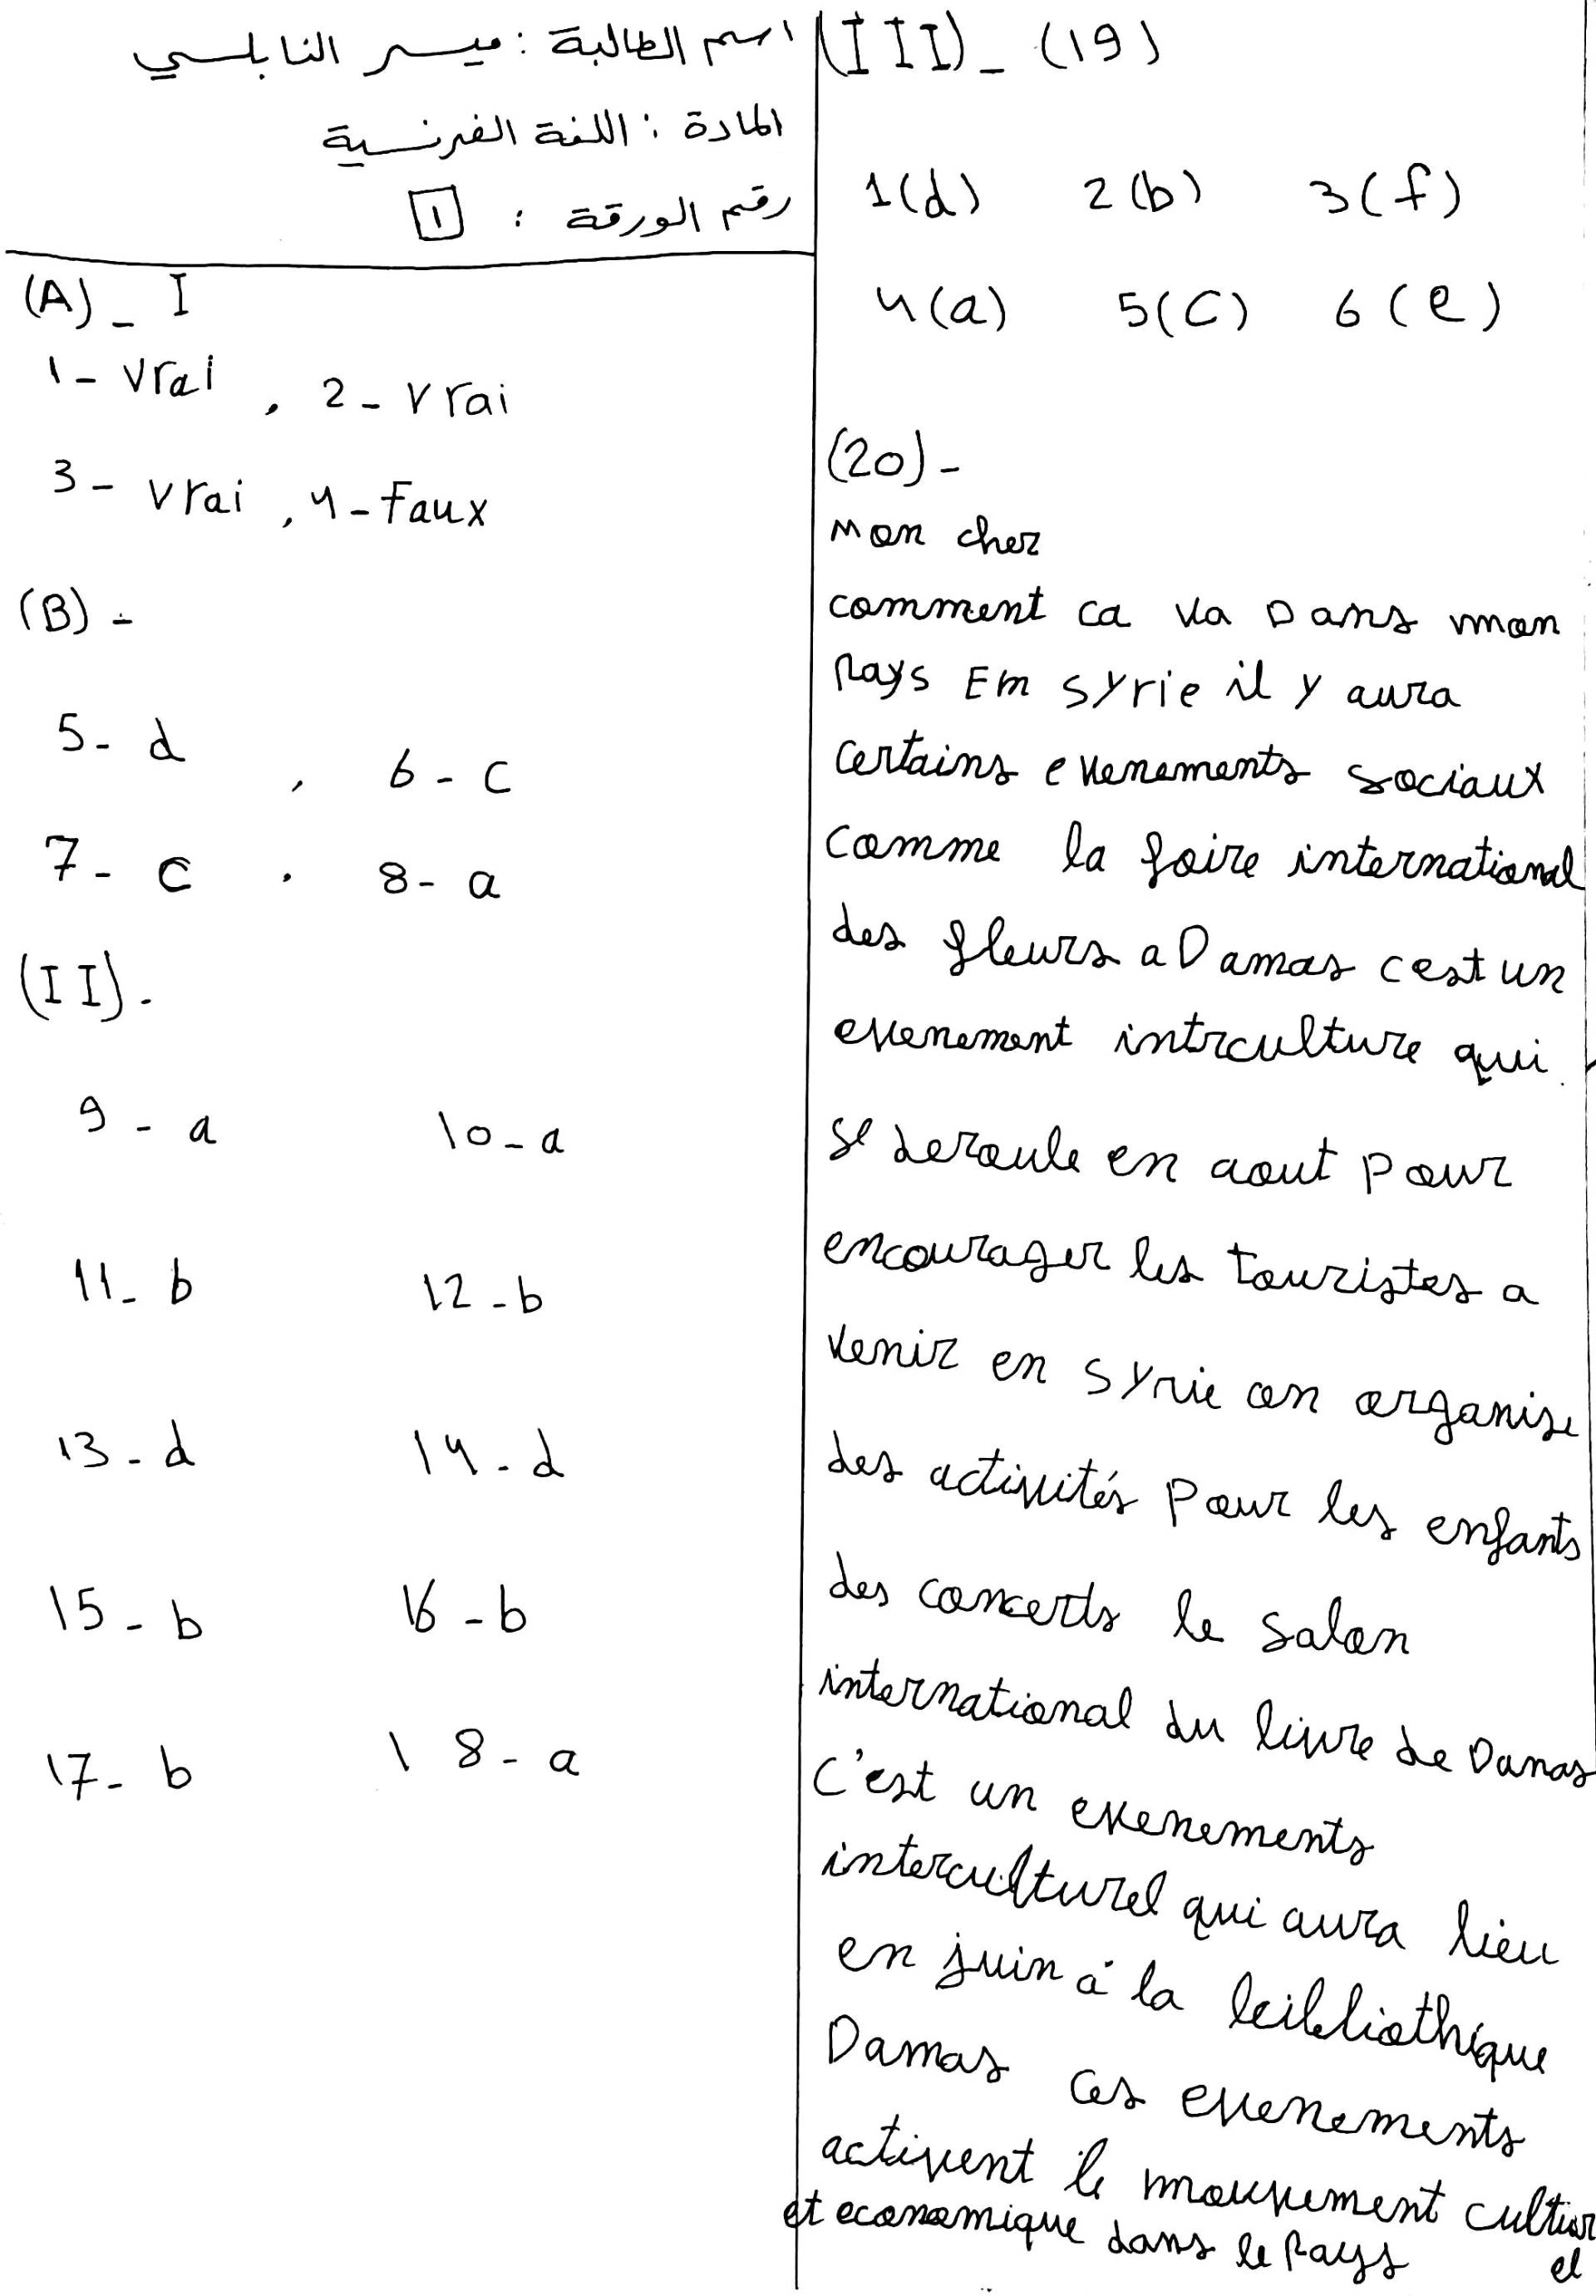 اسم الطالبة : ميسر النابلسي
المادة : اللغة الفرنسية
رقم الورقة : ١
(A) _ I
1 - vrai , 2 - vrai
3 - vrai , 4 - Faux
(B) -
5 - d , 6 - c
7 - c . 8 - a
(II) -
9 - a 10 - a
11 - b 12 - b
13 - d 14 - d
15 - b 16 - b
17 - b 18 - a
(III) _ (19)
1(d) 2(b) 3(f)
4(a) 5(C) 6(e)
(20) -
Mon cher
comment ca va Dans mon
Pays En syrie il y aura
certains evenements sociaux
comme la foire international
des fleurs a Damas cest un
evenement intrculture qui
se deroule en aout pour
encourager les touristes a
venir en syrie on organise
des activités pour les enfants
des concerts le salon
international du livre de Damas
c'est un evenements
interculturel qui aura lieu
en juin à la leibliothique
Damas ces evenements
activent le mouvement culturel
et economique dans le Pays